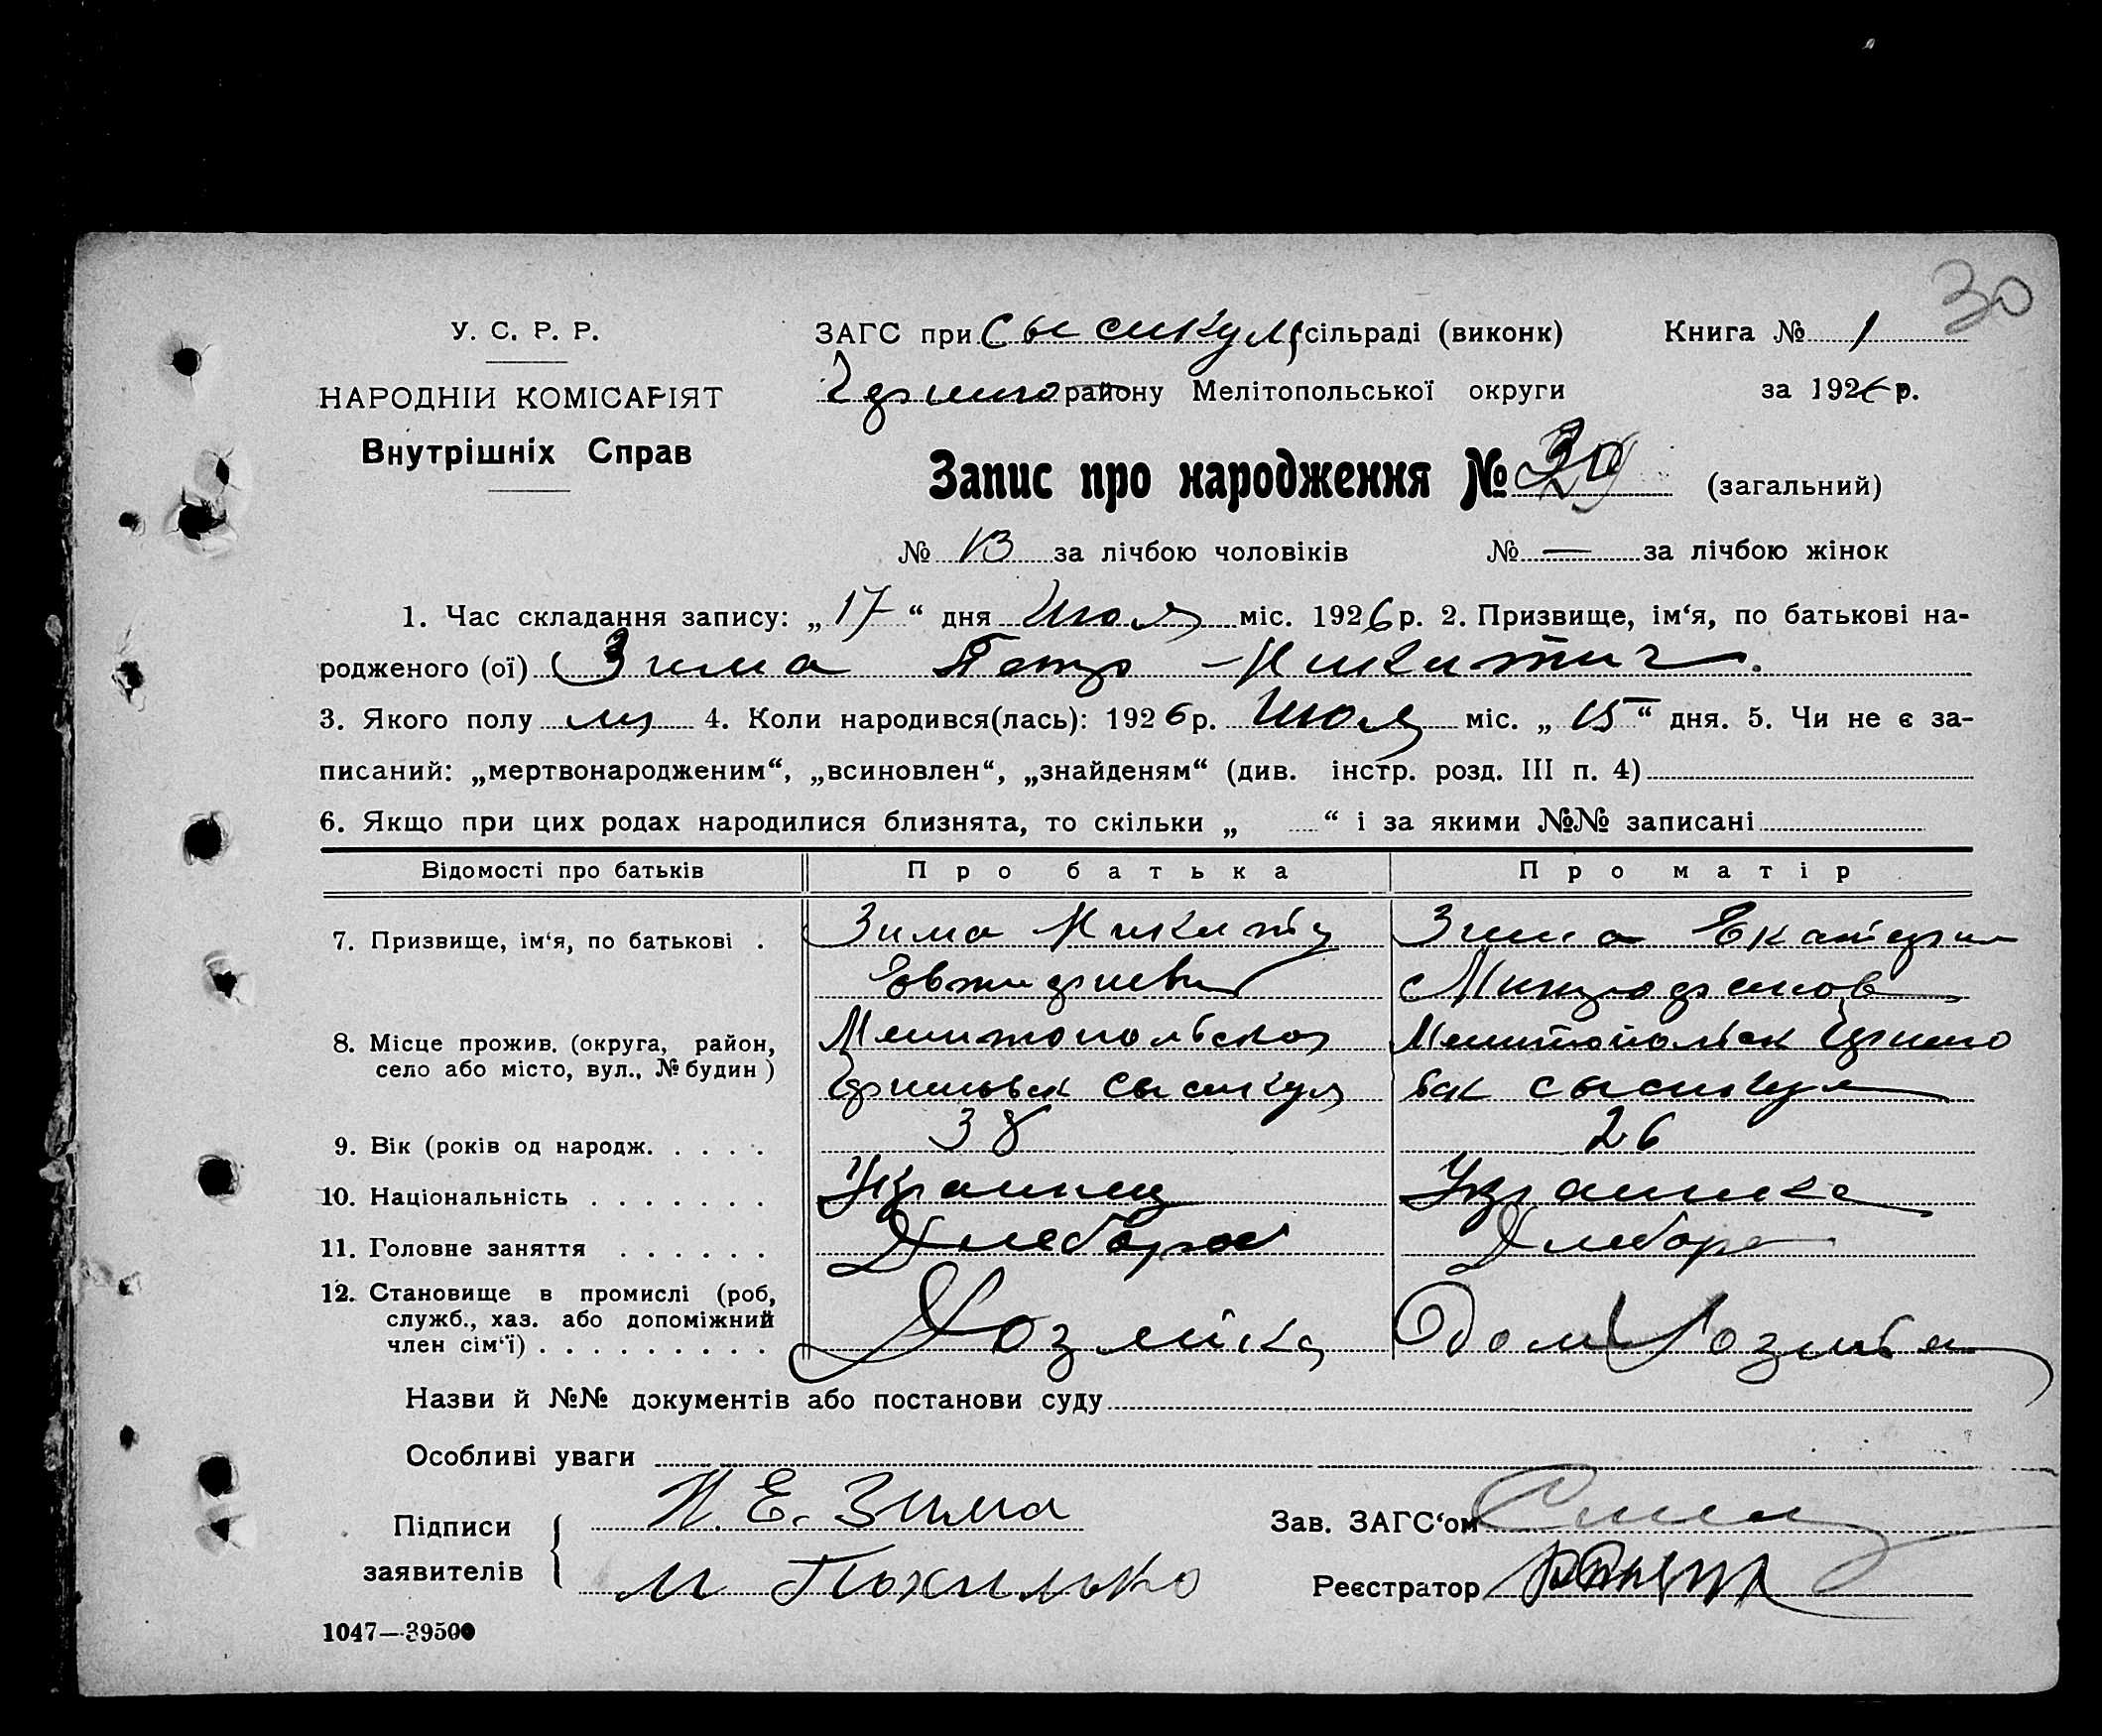 30
У. С. Р. Р.
НАРОДНІЙ КОМІСАРІЯТ
Внутрішніх Справ
ЗАГС при Сысикул сільраді (виконк) Книга № 1
району Мелітопольської округи за 1926 р.
Запис про народження № 30 (загальний)
№ 13 за лічбою чоловіків № — за лічбою жінок
1. Час складання запису: „17“ дня Июля міс. 1926 р. 2. Призвище, ім‘я, по батькові на-
родженого (ої) Зима Петр Никитич.
3. Якого полу му 4. Коли народився(лась): 1926 р. Июля міс. „15“ дня. 5. Чи не є за-
писаний: „мертвонародженим“, „всиновлен“, „знайденям“ (див. інстр. розд. III п. 4)
6. Якщо при цих родах народилися близнята, то скільки „ “ і за якими №№ записані
Відомості про батьків Про батька Про матір
7. Призвище, ім‘я, по батькові . Зима Никиту Зима Екатерин
8. Місце прожив. (округа, район, Мелитопольской Мелитопольск
село або місто, вул., № будин) Сысикул Сысикул
9. Вік (років од народж. . . . . 38 26
10. Національність . . . . . . . Украинец Украинка
11. Головне заняття . . . . . . Хлебороб Хлебороб
12. Становище в промислі (роб,
служб., хаз. або допоміжний
член сім‘ї) . . . . . . . . . Хозяйка Дом Хозяйка
Назви й №№ документів або постанови суду
Особливі уваги
Підписи Н. Е. Зима Зав. ЗАГС‘ом
заявителів и Похилько Реєстратор
1047—39500